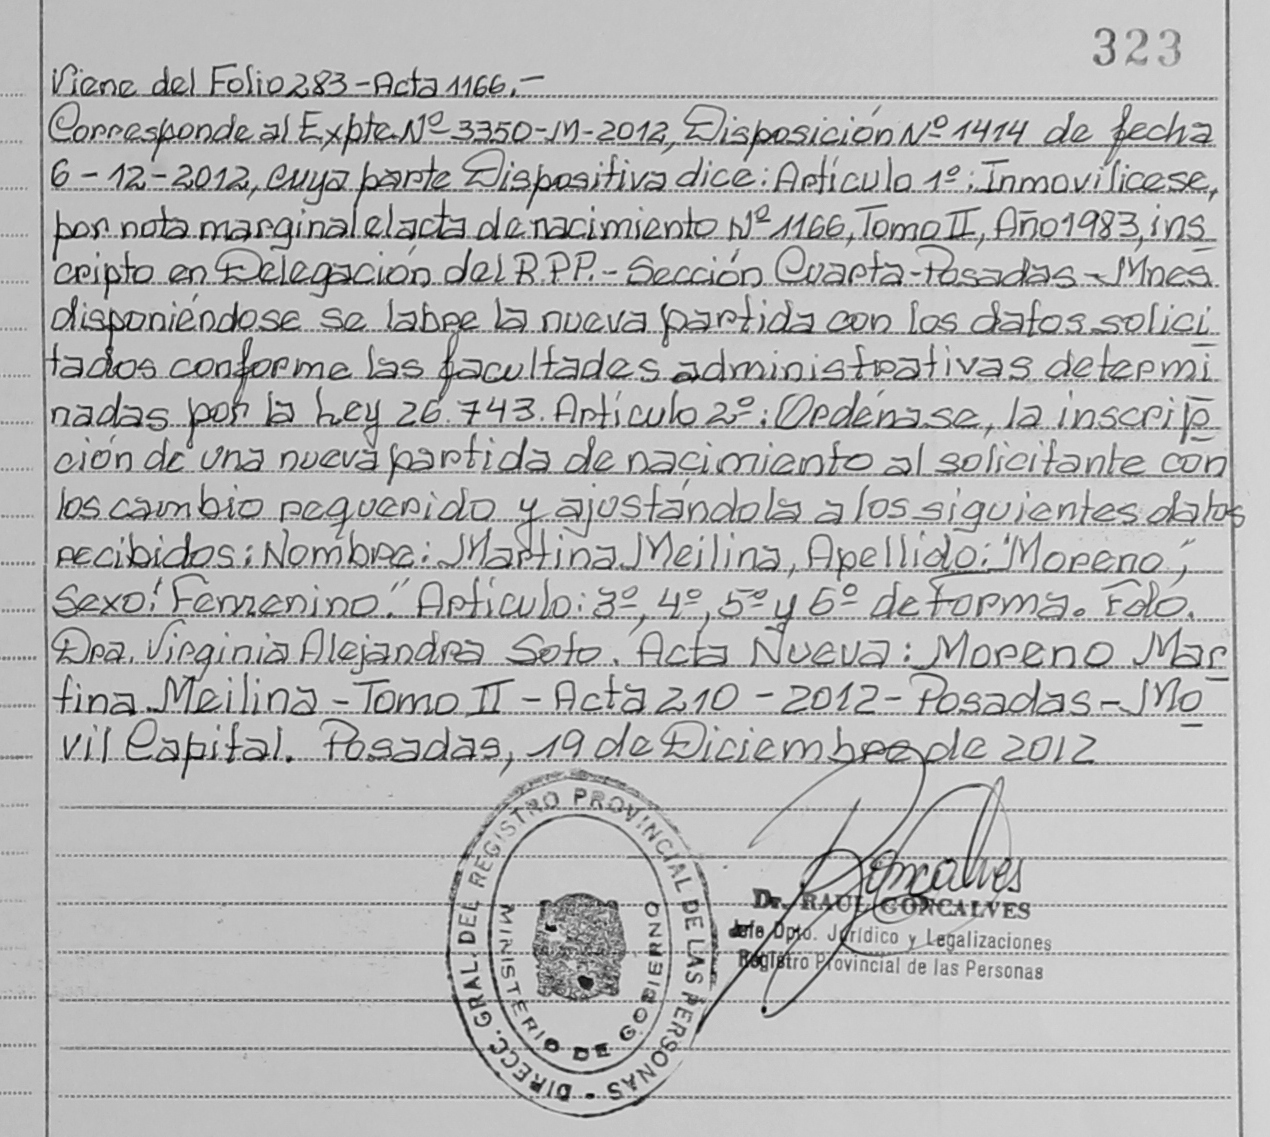 323
Viene del Folio 283-Acta 1166.-
Corresponde al Expte. Nº 3350-M-2012, Disposición Nº 1414 de fecha
6-12-2012, cuya parte Dispositiva dice: Artículo 1º: Inmovilicese,
por nota marginal el acta de nacimiento Nº 1166, Tomo II, Año 1983, ins
cripto en Delegación del R.P.P.- Sección Cuarta-Posadas-Mnes
disponiéndose se labre la nueva partida con los datos solici
tados conforme las facultades administrativas determi
nadas por la Ley 26.743. Artículo 2º: Ordénase, la inscrip
ción de una nueva partida de nacimiento al solicitante con
los cambio requerido y ajustándola a los siguientes datos
recibidos: Nombre: Martina Meilina, Apellido: "Moreno",
Sexo: "Femenino." Artículo: 3º, 4º, 5º y 6º de Forma. Fdo.
Dra. Virginia Alejandra Soto. Acta Nueva: Moreno Mar
tina Meilina - Tomo II - Acta 210 - 2012 - Posadas - Mo
vil Capital. Posadas, 19 de Diciembre de 2012
DIRECC. GRAL. DEL REGISTRO PROVINCIAL DE LAS PERSONAS -
MINISTERIO DE GOBIERNO
Goncalves
Dr. RAUL GONCALVES
Jefe Dpto. Jurídico y Legalizaciones
Registro Provincial de las Personas